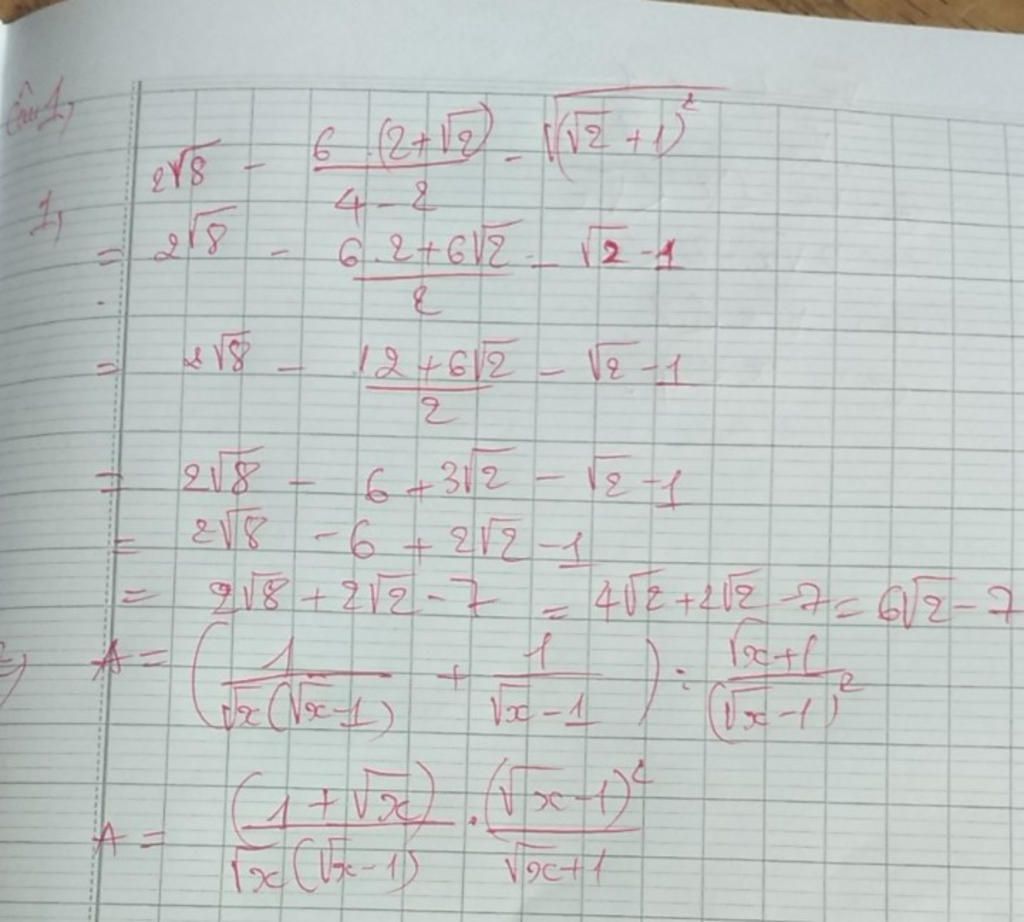 Câu 1,
1, 2√8 - (6.(2+√2))/(4-2) - √((√2+1)²)
= 2√8 - (6.2+6√2)/2 - √2-1
= 2√8 - (12+6√2)/2 - √2-1
= 2√8 - 6+3√2 - √2-1
= 2√8 -6 + 2√2-1
= 2√8+2√2-7 = 4√2+2√2-7 = 6√2-7
2, A = (1/(√x(√x-1)) + 1/(√x-1)) : (√x+1)/(√x-1)²
A = (1+√x)/(√x(√x-1)) . (√x-1)²/(√x+1)